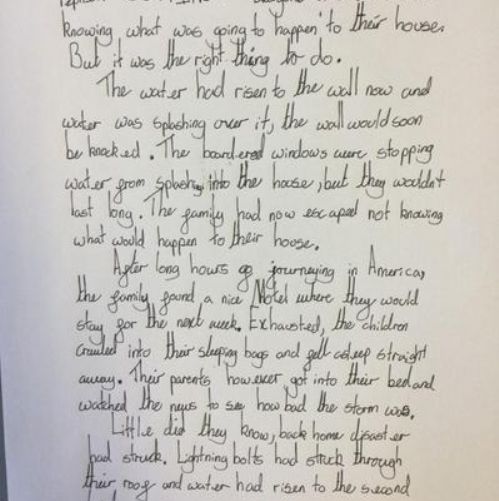 knowing what was going to happen to their house.
But it was the right thing to do.
The water had risen to the wall now and
water was splashing over it, the wall would soon
be knocked. The boardered windows were stopping
water from splashing into the house, but they wouldn't
last long. The family had now escaped not knowing
what would happen to their house.
After long hours of journeying in America,
the family found a nice Motel where they would
stay for the next week. Exhausted, the children
crawled into their sleeping bags and fell asleep straight
away. Their parents however got into their bed and
watched the news to see how bad the storm was.
Little did they know, back home disaster
had struck. Lightning bolts had struck through
their roof and water had risen to the second